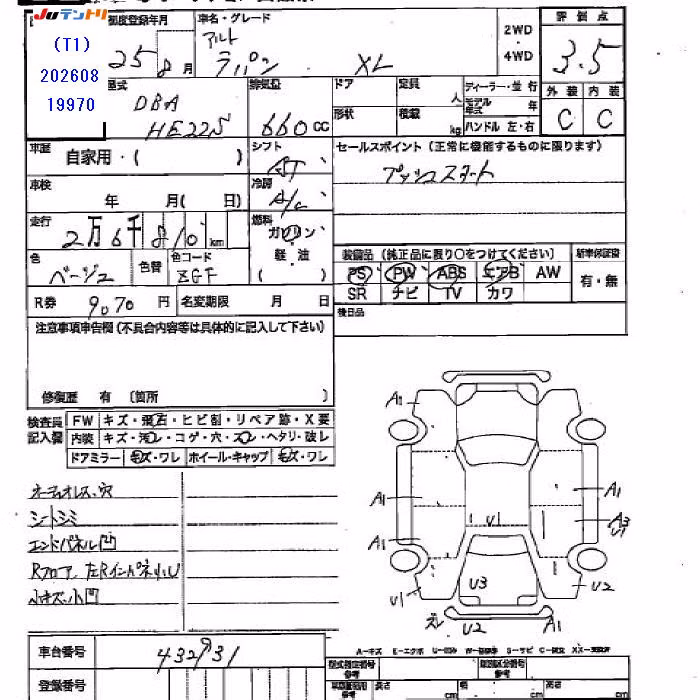 JUテントリ
(T1)
202608
19970
初度登録年月
25 8月
車名・グレード
アルト
ラパン XL
2WD
4WD
評価点
3.5
外装 内装
C C
型式
DBA
HE22S
排気量
660cc
ドア
形状
定員
人
積載
kg
ディーラー・並行
モデル年式 年
ハンドル 左・右
車歴
自家用・( )
シフト
AT
セールスポイント(正常に機能するものに限ります)
プッシュスタート
車検
年 月( 日)
冷房
A/C
走行
2万6千810km
燃料
ガソリン
軽・油
( )
色
ベージュ
色替
色コード
ZGF
装備品(純正品に限り○をつけてください)
PS PW ABS エアB AW
SR ナビ TV カワ
新車保証書
有・無
R券 9,070円
名変期限 月 日
後日品
注意事項申告欄(不具合内容等は具体的に記入して下さい)
修復歴 有 〔箇所 〕
検査員記入欄
FW キズ・飛石・ヒビ割・リペア跡・X要
内装 キズ・汚レ・コゲ・穴・スレ・ヘタリ・破レ
ドアミラー キズ・ワレ ホイール・キャップ キズ・ワレ
オーディオレス、穴
シートシミ
エンドパネル凹
小キズ、小凹
A1
A1
A1
A1
A1
A3
U1
U1
U3
U1
U2
U2
A1
車台番号
432931
登録番号
A-キズ E-エクボ U-凹み W-補修跡 S-サビ C-腐食 XX-交換済
型式指定番号
参考
類別区分番号
参考
長さ cm
cm
cm